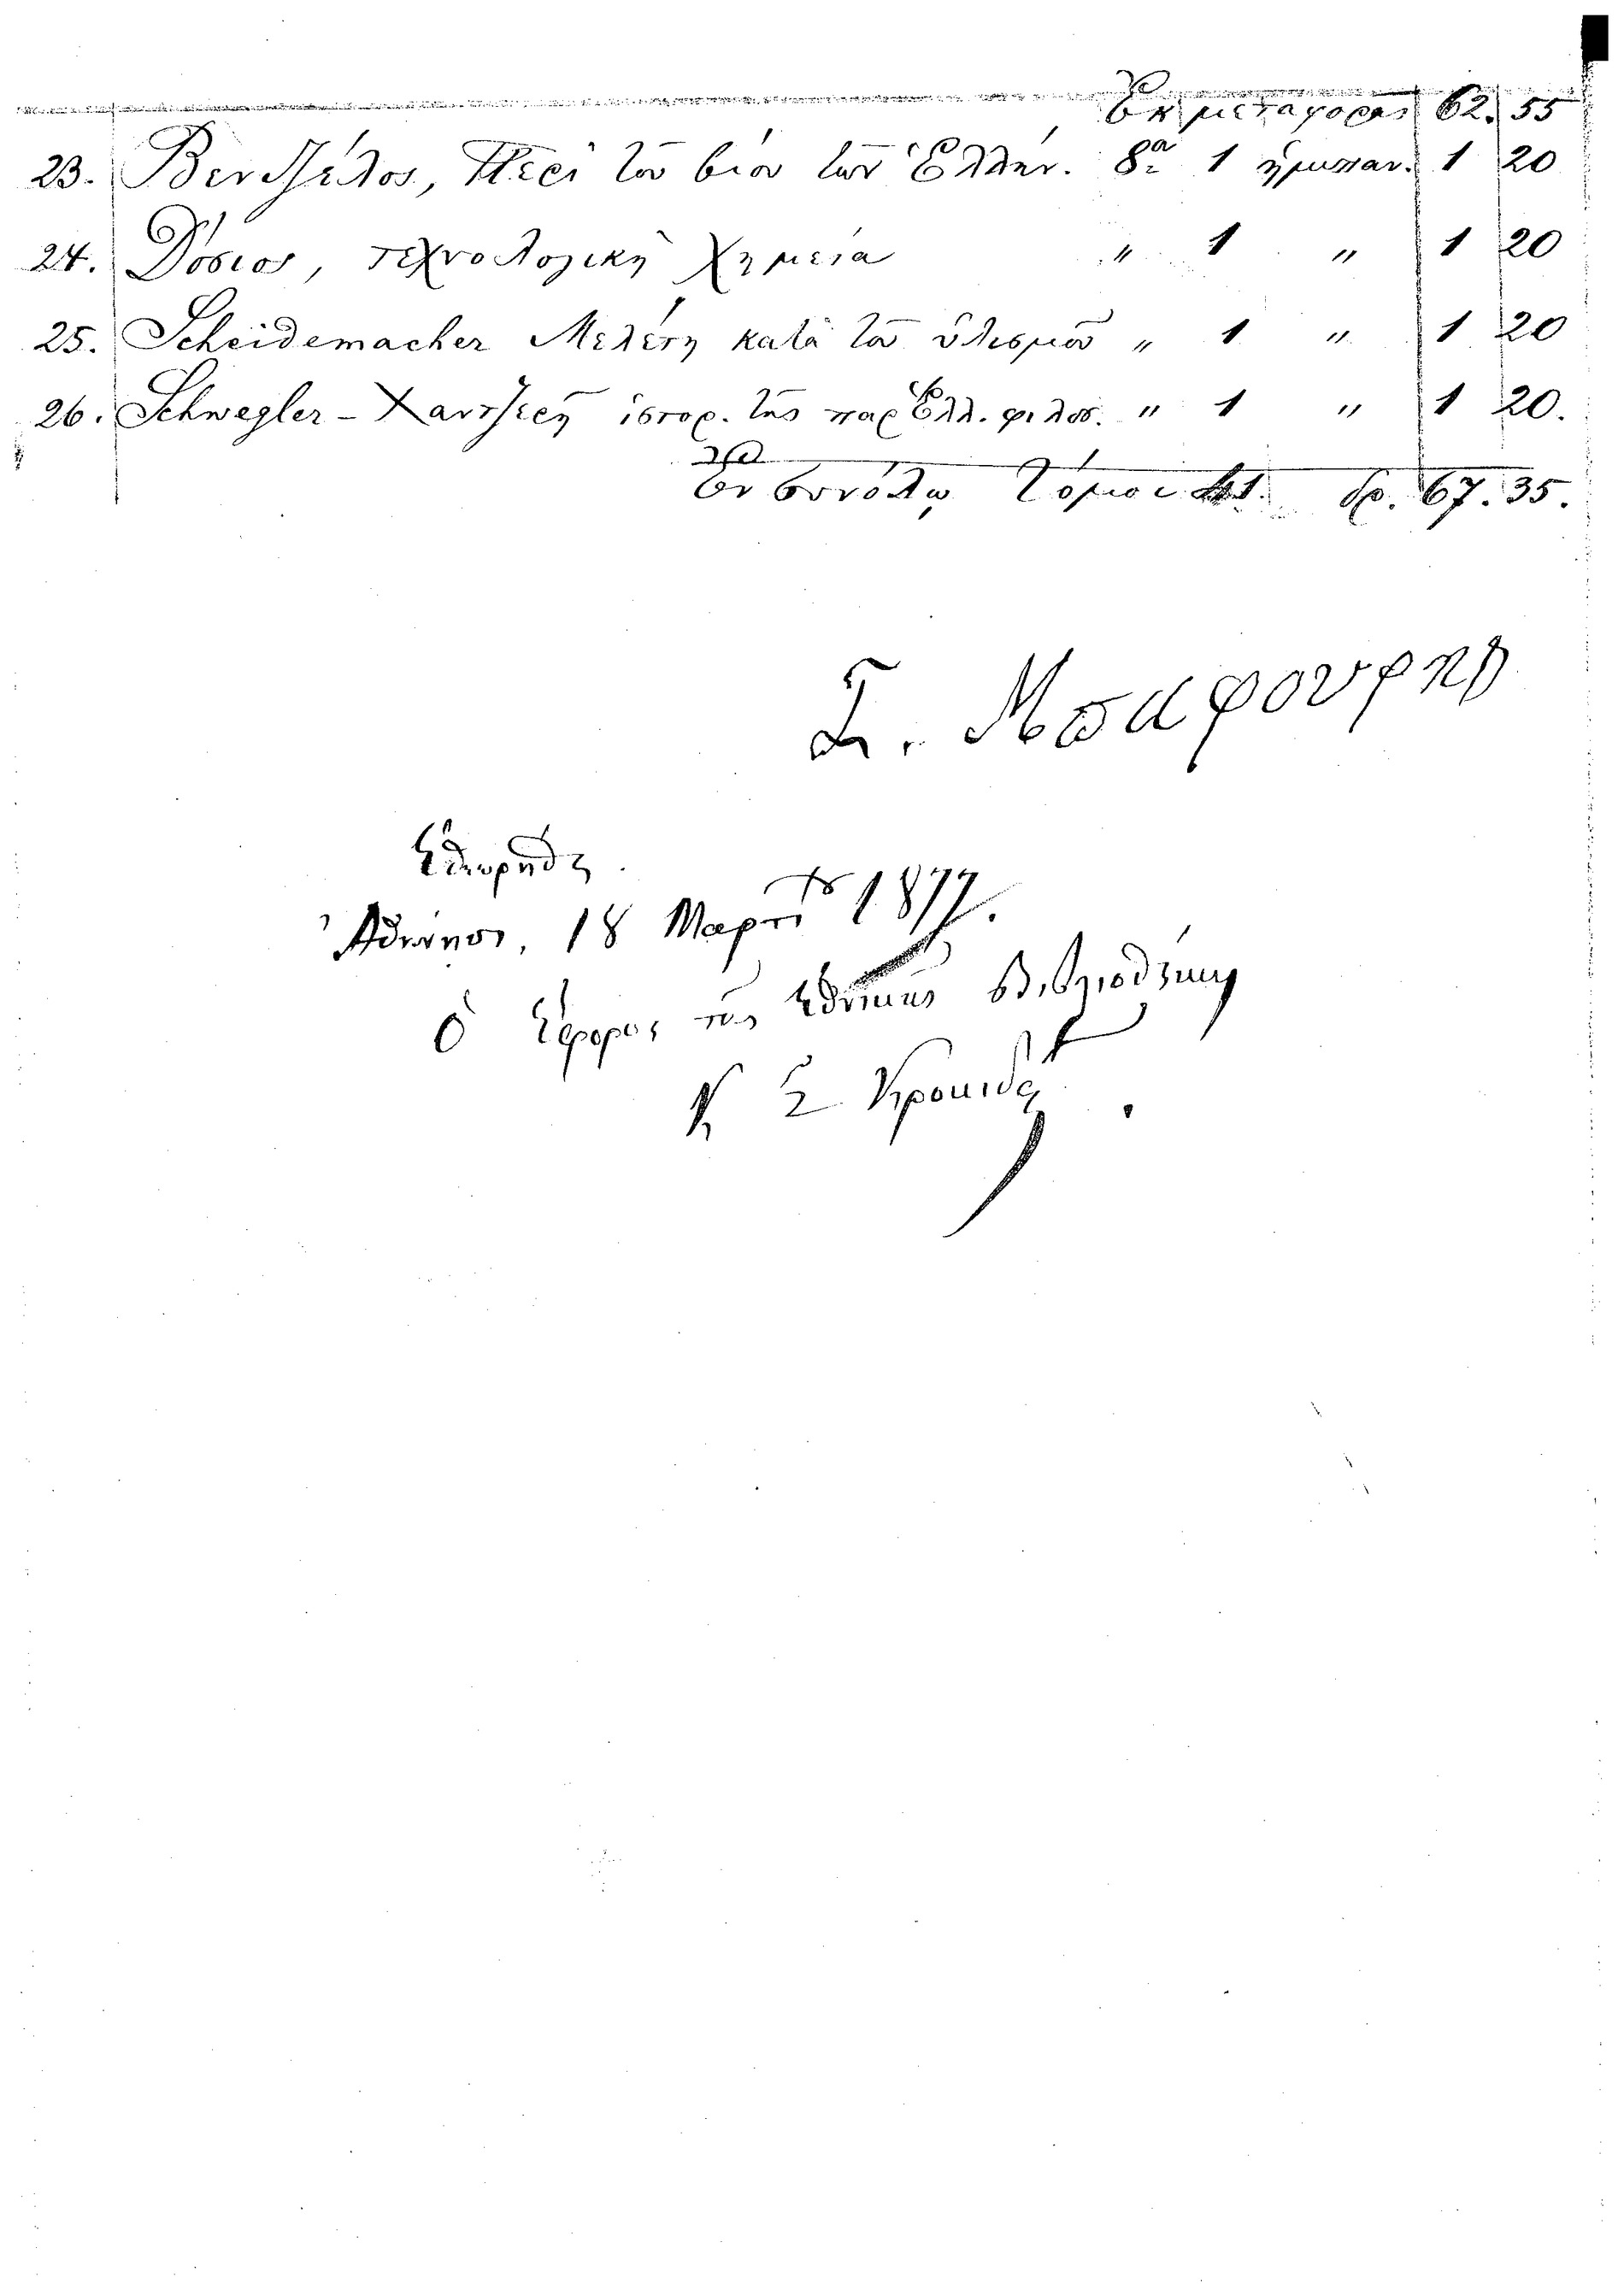 Ἐκ μεταφορᾶς 62. 55
23. Βενθύλος, Περὶ τοῦ βίου τῶν Ἑλλήν. 8ον 1 ἡμιπαν. 1 20
24. Δόσιος, Τεχνολογικὴ Χημεία " 1 " 1 20
25. Scheidemacher Μελέτη κατὰ τοῦ ὑλισμοῦ " 1 " 1 20
26. Schwegler - Χανθρίη ἱστορ. τῆς παρ Ἕλλ. φιλοσ. " 1 " 1 20.
Ἐν συνόλῳ Τόμοι Δρ. 67.35.
Ἐθεωρήθη
Ἀθήνησι, 18 Μαρτίου 1877.
Ὁ Ἔφορος τῆς Ἐθνικῆς Βιβλιοθήκης